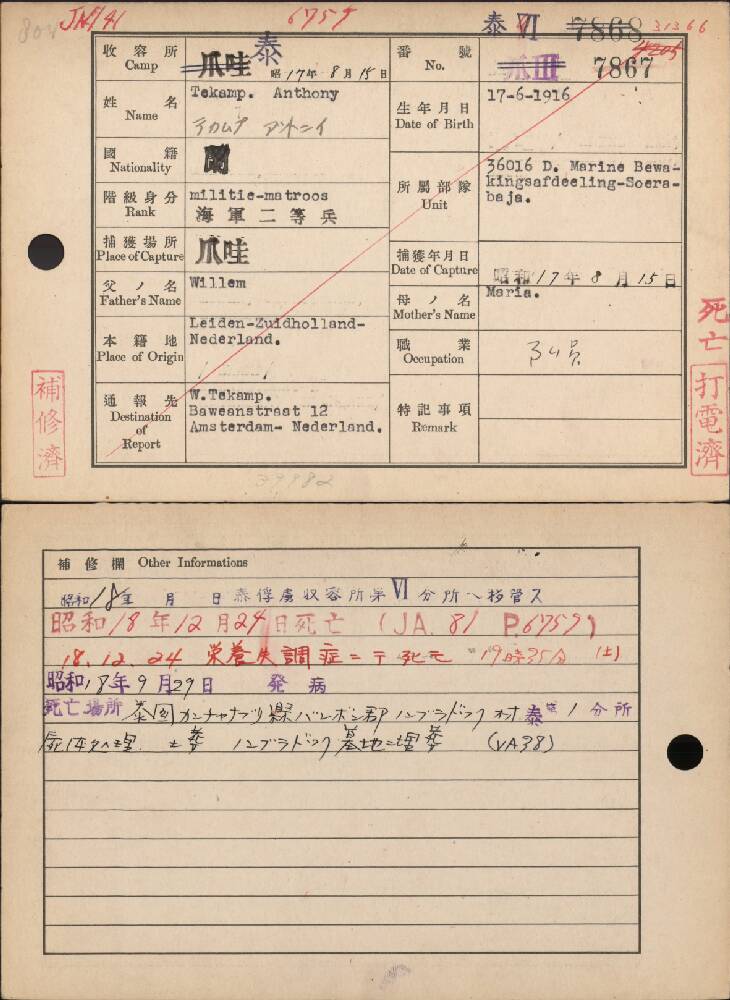 JA/41
6757
泰 VI
7868
31366
收容所 Camp
爪哇 泰
昭17年8月15日
番號 No.
泰III 7867
姓名 Name
Tekamp. Anthony
テカムプ アントニイ
生年月日 Date of Birth
17-6-1916
國籍 Nationality
蘭
所屬部隊 Unit
36016 D. Marine Bewa-
kingsafdeeling-Soera-
baja.
階級身分 Rank
militie-matroos
海軍二等兵
捕獲場所 Place of Capture
爪哇
捕獲年月日 Date of Capture
昭和17年8月15日
父ノ名 Father's Name
Willem
母ノ名 Mother's Name
Maria.
本籍地 Place of Origin
Leiden-Zuidholland-
Nederland.
職業 Occupation
通報先 Destination of Report
W.Tekamp.
Baweanstraat 12
Amsterdam- Nederland.
特記事項 Remark
補修濟
死亡
打電濟
39982
補修欄 Other Informations
昭和18年 月 日泰俘虜収容所第VI分所へ移管ス
昭和18年12月24日死亡 (JA. 81 P.6757)
18.12.24. 栄養失調症ニテ死亡 19時35分 (土)
昭和18年9月29日 発病
死亡場所 泰国カンチャナブリ縣バンポン郡ノンプラドック村 泰第1分所
死体処理 土葬 ノンプラドック墓地ニ埋葬 (VA38)